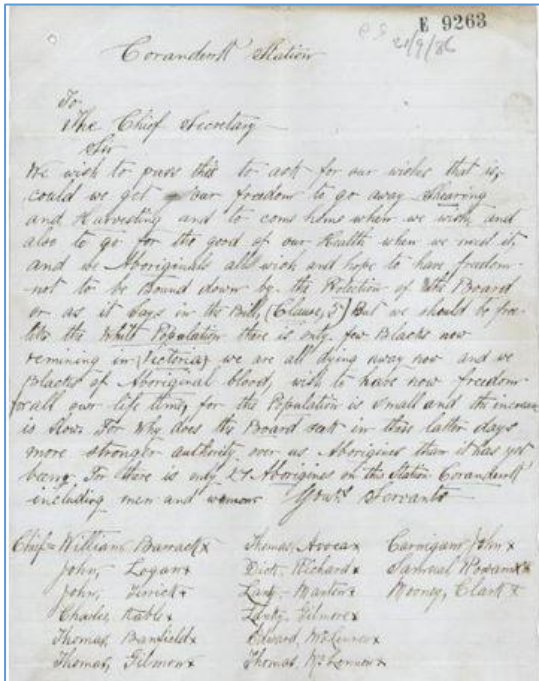 E 9263
21/9/86
Coranderrk Station
To
The Chief Secretary
Sir
We wish to pass this to ask for our wishes that is,
could we get our freedom to go away Shearing
and Harvesting and to come home when we wish and
also to go for the good of our Health when we need it,
and we Aboriginals all wish and hope to have freedom
not to be Bound down by the Protection of the Board
or as it says in the Bill, (Clause, 5) But we should be free
like the White Population there is only few Blacks now
remining in (Victoria) we are all dying away now and we
Blacks of Aboriginal blood, wish to have now freedom
for all our life time, for the Population is small and the increase
is slow. For why does the Board seek in these latter days
more stronger authority over us Aborigines than it has yet
being. For there is only 21 Aborigines on this Station Coranderrk
including men and women Yours Servants
Chief= William Barrack x Thomas, Avoca x
John, Logan x Dick, Richard x
John, Terrick x Lanky, Manton x Mooney, Clark x
Charles, Kable x Gilmore x
Thomas, Banfield x Edward, McLennon x
Thomas, Gilmore x Thomas, McLennon x